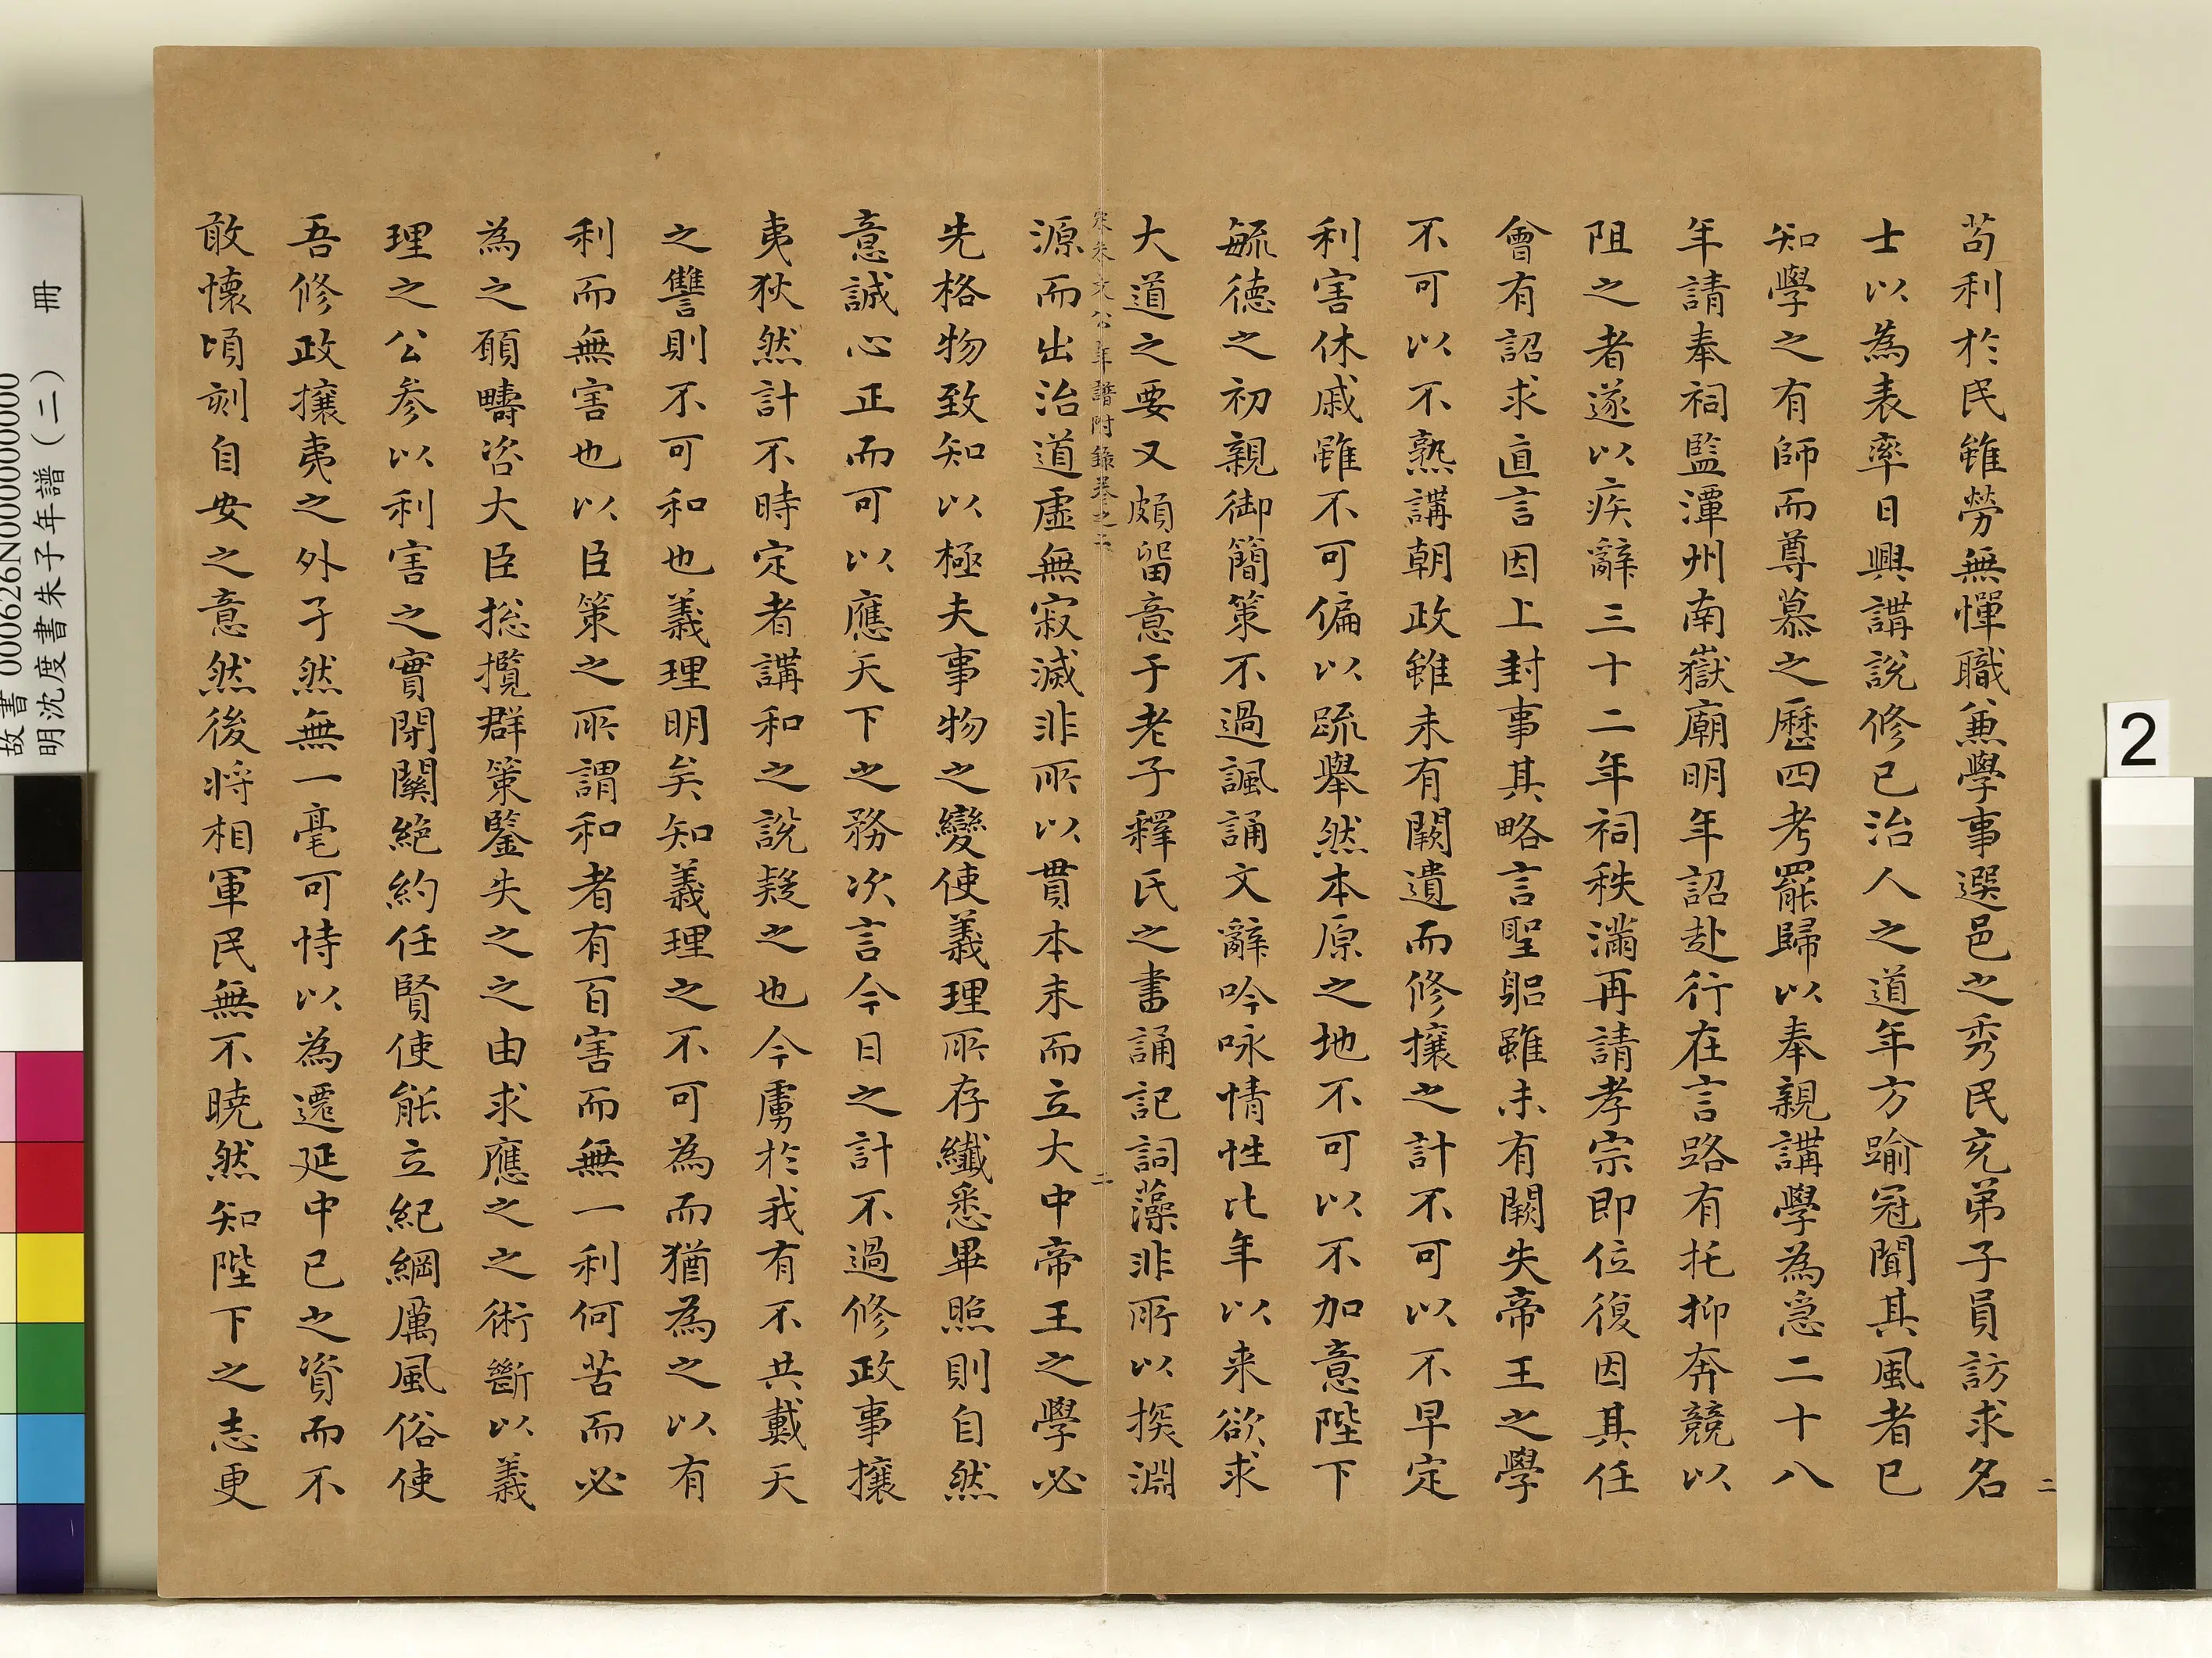 苟利於民雖勞無憚職兼學事選邑之秀民充弟子員訪求名
士以為表率日興講說修己治人之道年方踰冠聞其風者已
知學之有師而尊慕之歷四考罷歸以奉親講學為急二十八
年請奉祠監潭州南嶽廟明年詔赴行在言路有托抑奔競以
阻之者遂以疾辭三十二年祠秩滿再請孝宗即位復因其任
會有詔求直言因上封事其略言聖躬雖未有闕失帝王之學
不可以不熟講朝政雖未有闕遺而修攘之計不可以不早定
利害休戚雖不可偏以疏舉然本原之地不可以不加意陛下
毓德之初親御簡策不過諷誦文辭吟咏情性比年以来欲求
大道之要又頗留意于老子釋氏之書誦記詞藻非所以探淵
宋朱文公年譜附錄卷之二
二
源而出治道虛無寂滅非所以貫本末而立大中帝王之學必
先格物致知以極夫事物之變使義理所存纖悉畢照則自然
意誠心正而可以應天下之務次言今日之計不過修政事攘
夷狄然計不時定者講和之說疑之也今虜於我有不共戴天
之讐則不可和也義理明矣知義理之不可為而猶為之以有
利而無害也以臣策之所謂和者有百害而無一利何苦而必
為之願疇咨大臣捴攬群策鑒失之之由求應之之術斷以義
理之公参以利害之實閉關絕約任賢使能立紀綱厲風俗使
吾修政攘夷之外孑然無一毫可恃以為遷延中已之資而不
敢懷頃刻自安之意然後将相軍民無不曉然知陛下之志更
二
2
故書 000626N000000000
明沈度書朱子年譜（二） 冊